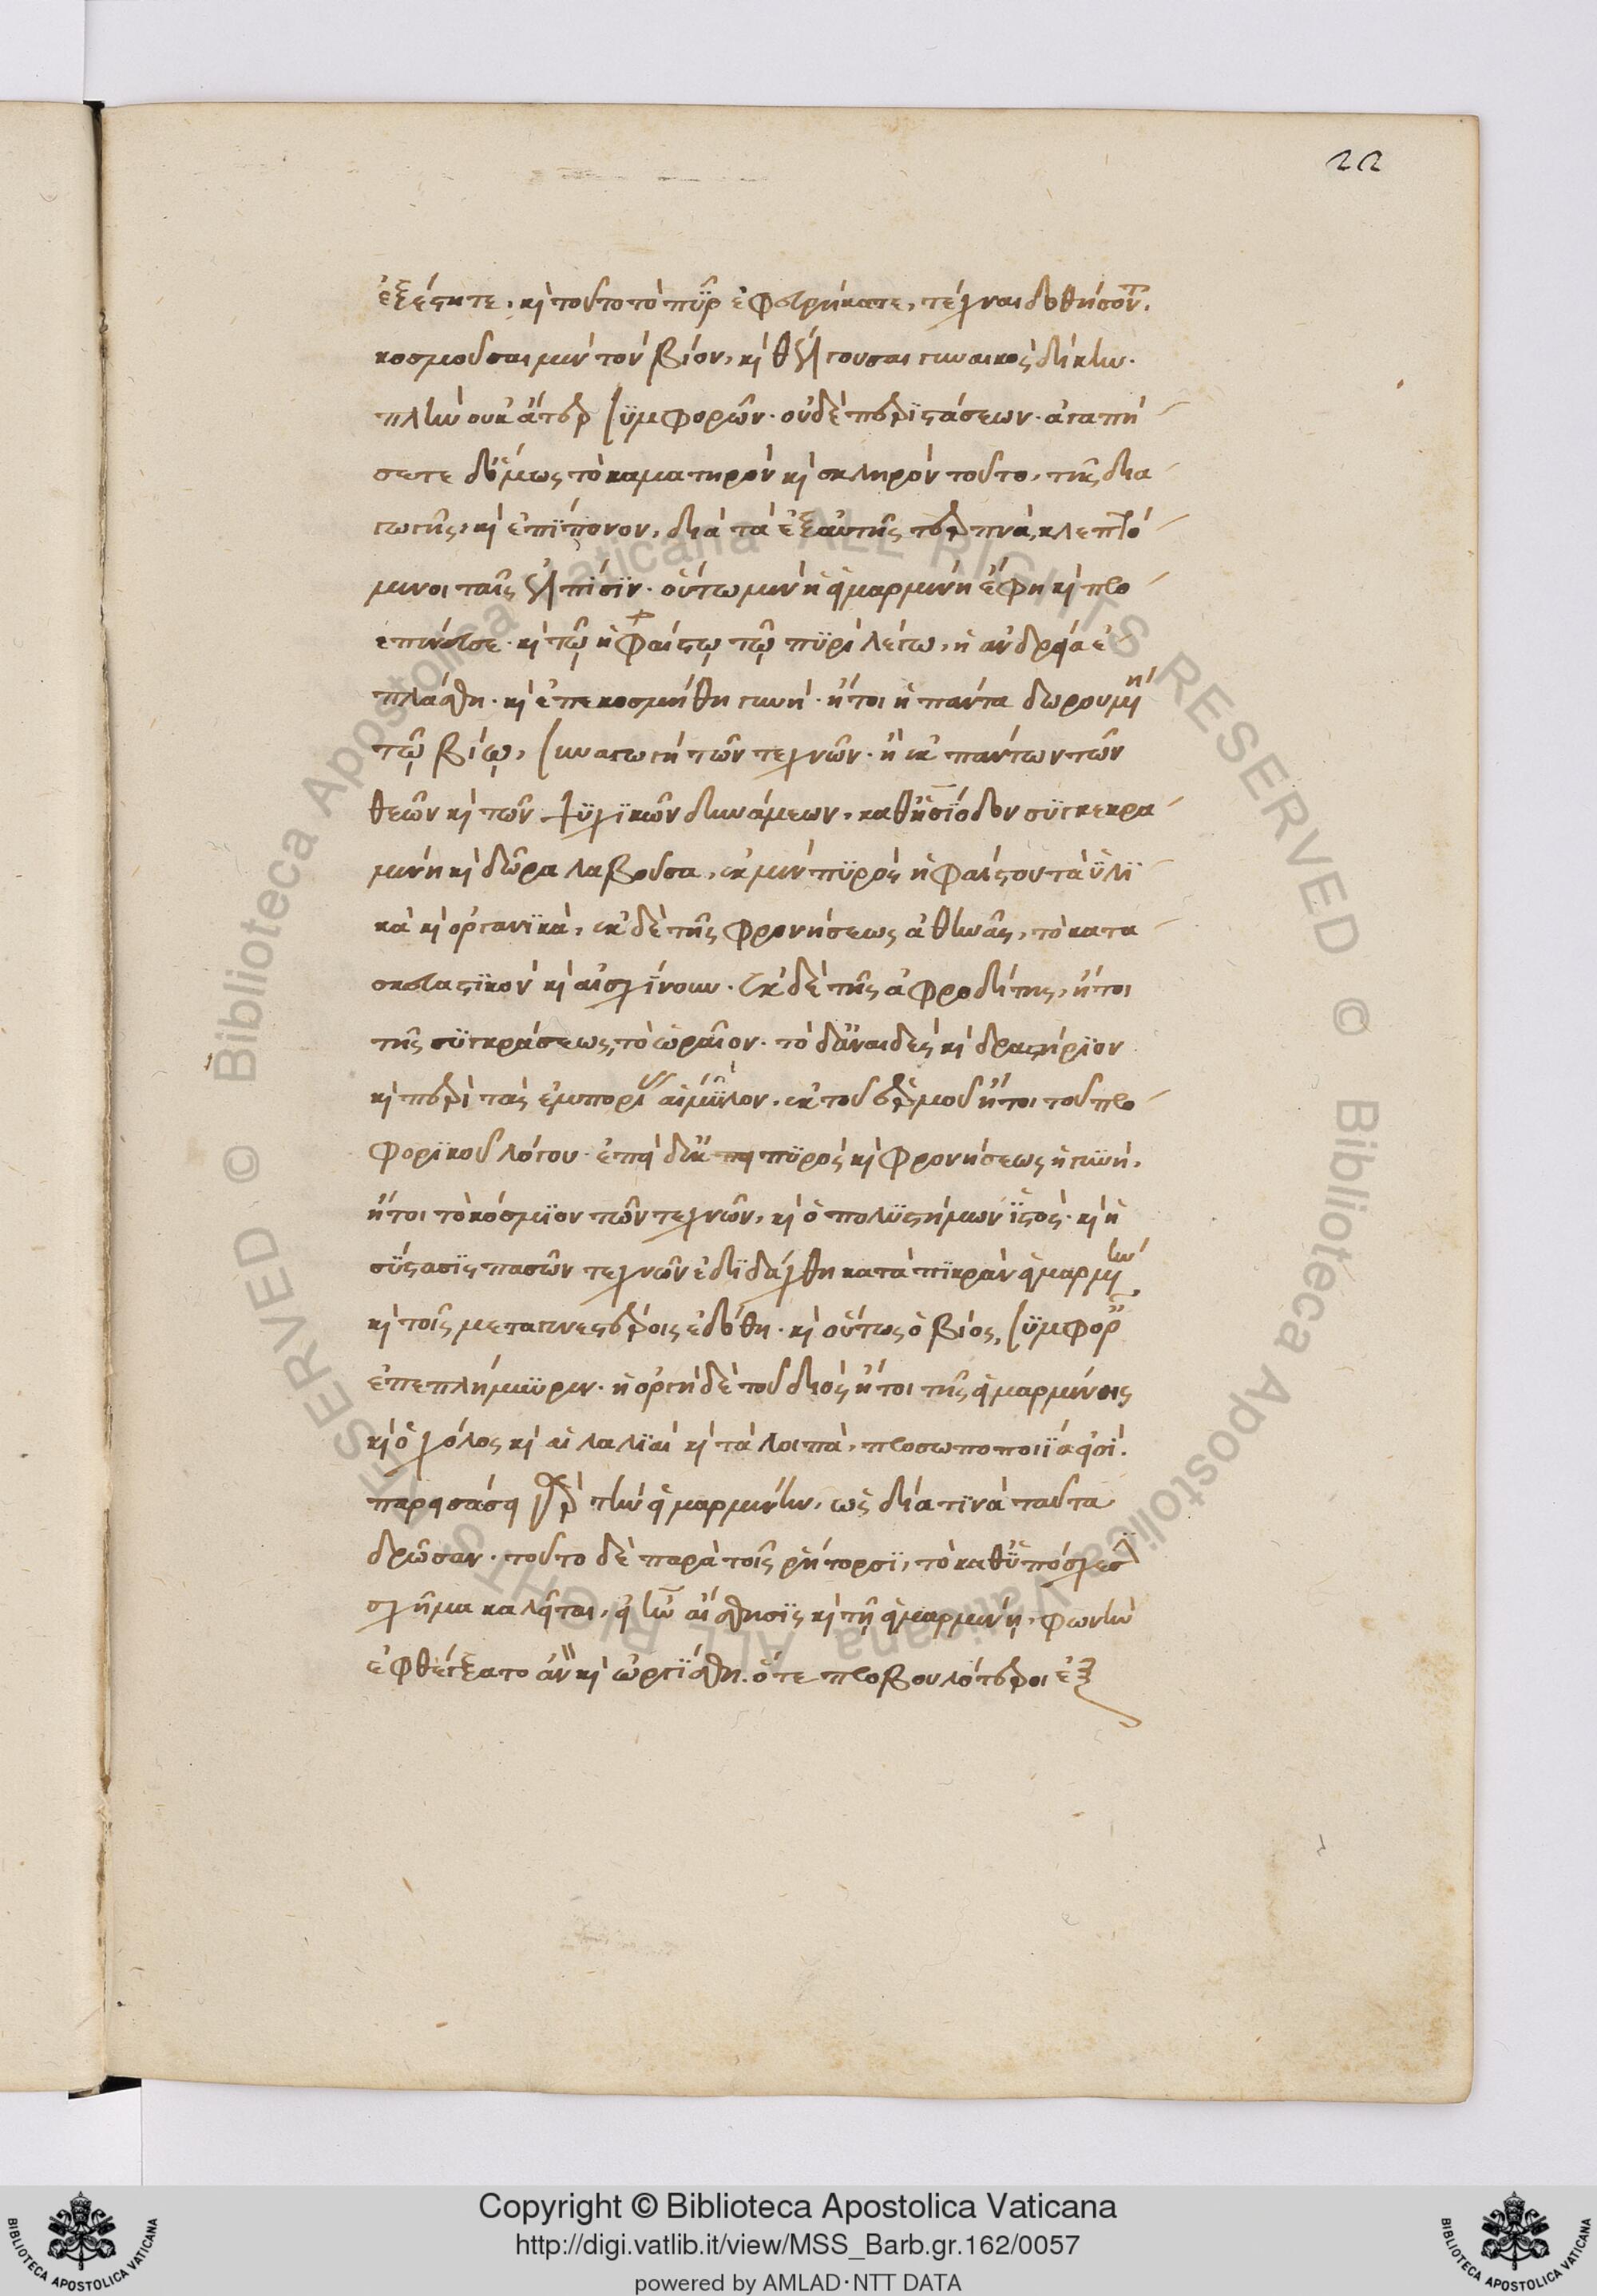 ἐξέστητε· καὶ τοῦτο τὸ πῦρ ἐφευρήκατε, τέχναι δοθήσονται.
κοσμοῦσαι μὲν τὸν βίον, καὶ θέλγουσαι γυναικὸς δίκην·
πλὴν οὐκ ἄτερ συμφορῶν· οὐδὲ περιστάσεων· ἀγαπή
σετε δ' ὅμως τὸ καματηρὸν καὶ σκληρὸν τοῦτο, τῆς δια
γωγῆς, καὶ ἐπίπονον, διὰ τὰ ἐξ αὐτῆς τερπνὰ, κλεπτό
μενοι ταῖς ἐλπίσιν· οὕτω μὲν ἡ εἱμαρμένη ἔφη καὶ προ
επένευσε· καὶ τῷ ἡφαίστῳ τῷ πυρὶ λέγω, ἡ ἀνδρεία ἐ
πλάσθη· καὶ ἐπεκοσμήθη γυνή· ἤτοι ἡ πάντα δωρουμένη
τῷ βίῳ, συναγωγὴ τῶν τεχνῶν· ἡ ἐκ πάντων τῶν
θεῶν καὶ τῶν ψυχικῶν δυνάμεων, καθ' ἡσίοδον συγκεκρα
μένη καὶ δῶρα λαβοῦσα, ἐκ μὲν πυρὸς ἡφαίστου τὰ ὑλι
κὰ καὶ ὀργανικὰ, ἐκ δὲ τῆς φρονήσεως ἀθηνᾶς, τὸ κατα
σκευαστικὸν καὶ ἀγχίνουν. ἐκ δὲ τῆς ἀφροδίτης, ἤτοι
τῆς συγκράσεως, τὸ ὡραῖον· τὸ δ' ἀναιδὲς καὶ δραστήριον
καὶ περὶ τὰς ἐμπορίας αἱμύλον, ἐκ τοῦ ἑρμοῦ ἤτοι τοῦ προ
φορικοῦ λόγου· ἐπεὶ δ' ἐκ πυρὸς καὶ φρονήσεως ἡ γυνή,
ἤτοι τὸ κόσμιον τῶν τεχνῶν, καὶ ὁ πολυστήμων ἱστός· καὶ ἡ
σύστασις πασῶν τεχνῶν ἐδιδάχθη κατὰ πικρὰν εἱμαρμένην
καὶ τοῖς μεταγενεστέροις ἐδόθη· καὶ οὕτως ὁ βίος, συμφορῶν
ἐπεπλήμμυρεν· ἡ ὀργὴ δὲ τοῦ διὸς ἤτοι τῆς εἱμαρμένης
καὶ ὁ χόλος καὶ αἱ λαλιαὶ καὶ τὰ λοιπὰ, προσωποποιΐα εἰσί.
παρεισάγει γὰρ τὴν εἱμαρμένην, ὡς διά τινα ταῦτα
δρῶσαν· τοῦτο δὲ παρὰ τοῖς ῥήτορσι, τὸ καθ' ὑπόσχεσιν
σχῆμα καλεῖται, εἰ ἦν αἴσθησις καὶ τῇ εἱμαρμένῃ, φωνὴν
ἐφθέγξατο ἂν καὶ ὠργίσθη. ὅτε προβουλότεροι ἐξ
22
Copyright © Biblioteca Apostolica Vaticana
http://digi.vatlib.it/view/MSS_Barb.gr.162/0057
powered by AMLAD·NTT DATA